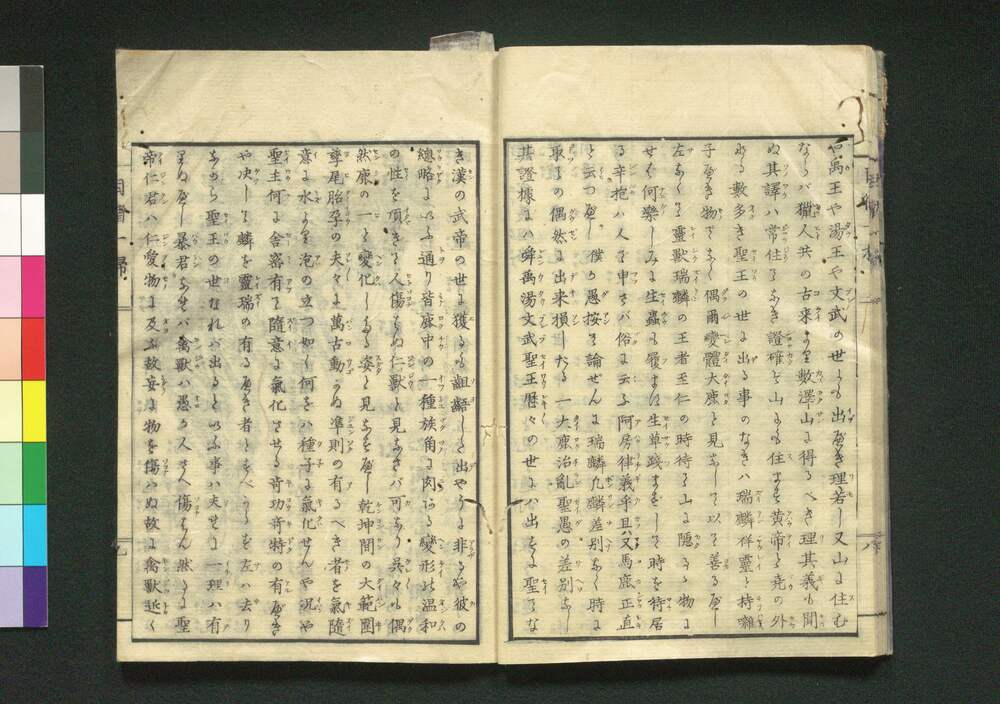 き禹王や湯王や文武の世よも出べき理若し又山に住む
ならバ獵人共の古来より數澤山に得るべき理其義も聞
ぬ其譯ハ常住なき證確と山よも住まず黄帝と堯の外
永る數多き聖王の世に出る事のなきハ瑞麟伴靈と持囃
子べき物でなく偶爾變體大鹿と見なして以て善るべし
左なくて靈獸瑞麟の王者至仁の時待て山に隠るゝ物に
せバ何樂しみに生蟲も履まず生草踐まずして時を待居
る辛抱ハ人で申さバ俗に云ふ阿房律義乎且又馬鹿正直
と云つべし僕の愚按を論ぜんに瑞麟凡麟差別なく時に
取ての偶然に出来損したる一大鹿治亂聖愚の差別なし
其證據にハ舜禹湯文武聖王暦々の世にハ出ざるよ聖でな
き漢の武帝の世よ獲るも齟齬しゝ出やうよ非ずや彼の
總略よいふ通り皆鹿中の一種族角よ肉ある變形れ温和
の性を頂きて人傷なハぬ仁獸と見なさバ可なり呉々も偶
然鹿の一と變化しゝる姿と見なすべし乾坤間の大範圍
孳尾胎孕の夫々よ萬古動かぬ準則の有るべき者を氣隨
意よ水よて泡の立つ如く何をハ種子よ氣化せんや况や
聖主何よ含密有て隨意よ氣化させる奇功奇特の有べき
や决して麟を靈瑞の有るべき者とすべからず左ハ去り
ながら聖王の世なれバ出るといふ事ハ夫せよ一理ハ有
ぬべし暴君なせバ禽獸ハ愚か人さへ傷なハん然るよ聖
帝仁君ハ仁愛物よ及ぶ故妄よ物を傷ハぬ故よ禽獸近く